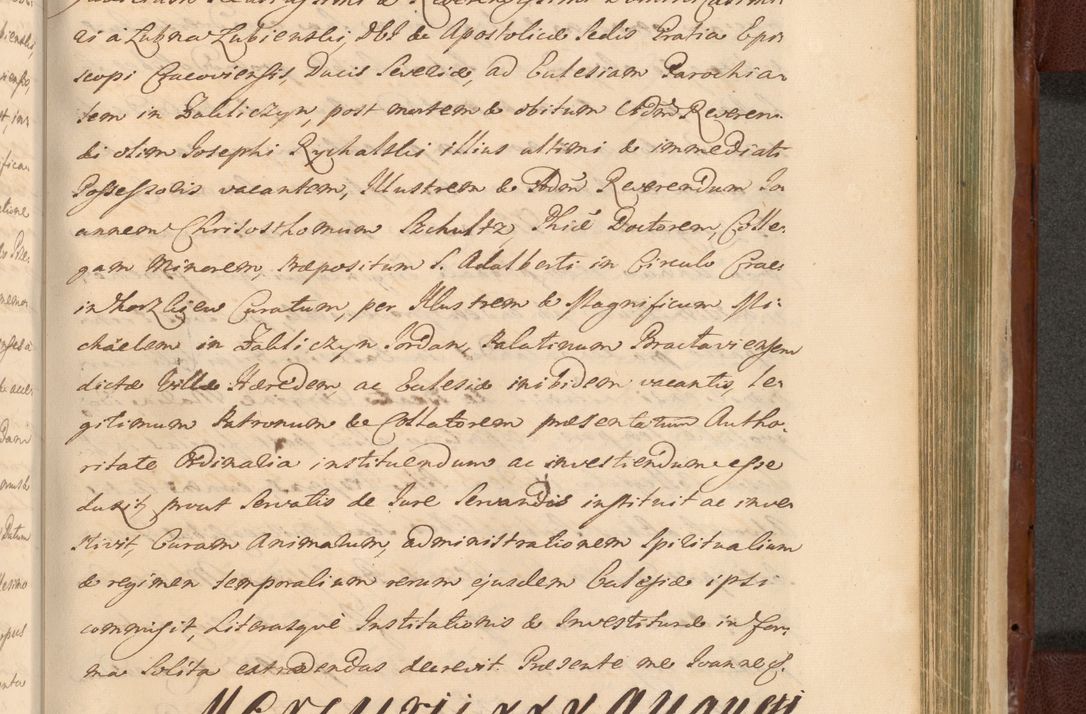 ri a Lubna Lubienski, DEI & Apostolicæ Sedis Gratia Epi-
scopi Cracoviensis, Ducis Severiæ, ad Eclesiam Parochia-
lem in Zakliczyn, post mortem & obitum Adm Reveren-
di olim Josephi Rychalski illius ultimi & immediati
Possessoris vacantem, Illustrem & Adm Reverendum Jo-
annem Chrisosthomum Schultz, Phiæ Doctorem, Colle-
gam Minorem, Præpositum S. Adalberti in Circulo Crac:
in Korzkiew Curatum, per Illustrem & Magnificum Mi-
chäelem in Zakliczyn Jordan, Palatinum Bractaviensem
dictæ Villæ Hæredem ac Eclesiæ inibidem vacantis, le-
gitimum Patronum & Collatorem præsentatum Autho-
ritate Ordinaria instituendum ac investiendum esse
duxit, prout servatis de Jure servandis instituit ac inves-
tivit, Curam Animarum, administrationem Spiritualium
& regimen temporalium rerum ejusdem Eclesiæ ipsi
commisit, Literasque Institutionis & Investituræ in for-
ma solita extradendas decrevit. Præsente me Joanne
Mercurij xxx Augusti